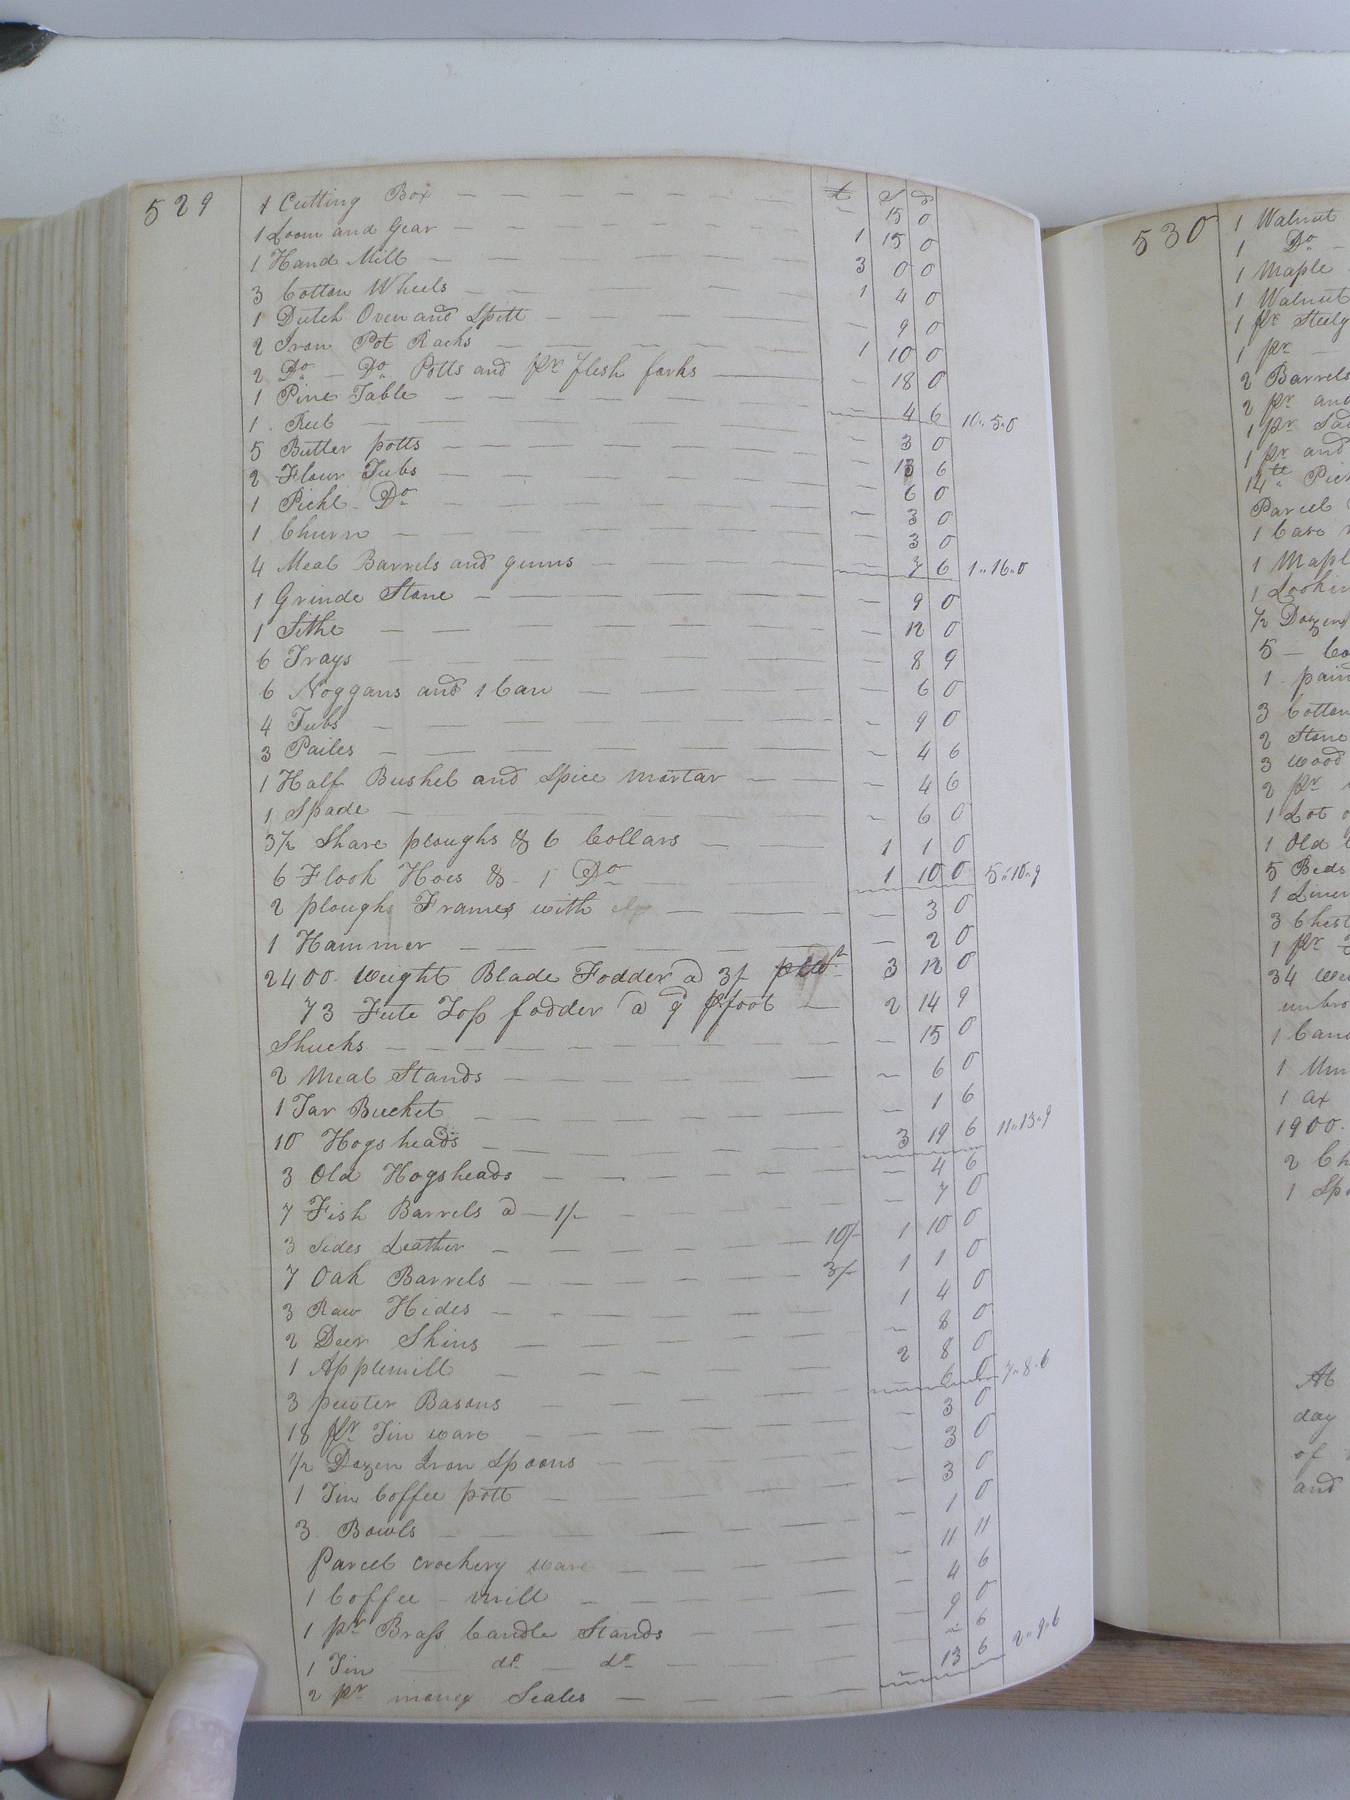 529
£ S D
1 Cutting Box - 15 0
1 Loom and Gear 1 15 0
1 Hand Mill 3 0 0
3 Cotton Wheels 1 4 0
1 Dutch Oven and Spitt - 9 0
2 Iron Pot Racks 1 10 0
2 Do - Do Potts and pr flesh forks - 18 0
1 Pine Table - 4 6 10.. 5.. 0
1 Tub - 3 0
5 Butter potts - 13 6
2 Flour Tubs - 6 0
1 Pickl. Do - 3 0
1 Churn - 3 0
4 Meal Barrels and gums - 7 6 1.. 16.. 0
1 Grinde Stone - 9 0
1 Sithe - 12 0
6 Trays - 8 9
6 Noggans and 1 Can - 6 0
4 Tubs - 9 0
3 Pailes - 4 6
1 Half Bushel and Spice mortar - 4 6
1 Spade - 6 0
3 1/2 Share ploughs & 6 Collars 1 1 0
6 Flook Hoes & 1 Do 1 10 0 5.. 10.. 9
2 ploughs Frames with - 3 0
1 Hammer - 2 0
2400. weight Blade Fodder @ 3/ 3 12 0
73 Fete Top fodder @ 9 pr foot 2 14 9
Shucks - 15 0
2 Meal Stands - 6 0
1 Tar Bucket - 1 6
10 Hogsheads 3 19 6 11.. 13.. 9
3 Old Hogsheads - 4 6
7 Fish Barrels @ - 1/- - 7 0
3 Sides Leather 10/- 1 10 0
7 Oak Barrels 3/- 1 1 0
3 Raw Hides 1 4 0
2 Deer Skins - 8 0
1 Applemill 2 8 0
3 pewter Basons - 6 0 7.. 8.. 6
18 pr Tin ware - 3 0
1/2 Dozen Iron Spoons - 3 0
1 Tin Coffee pott - 3 0
3 Bowls - 1 0
Parcel crockery ware - 11 11
1 Coffee mill - 4 6
1 pr Brass Candle Stands - 9 0
1 Tin do - do - - 6
2 pr money Scales - 13 6 2.. 9.. 6
530
1 Walnut
1 Do -
1 Maple
1 Walnut
1 pr
1 pr -
2 Barrels
2 pr and
1 pr
1 pr and
14
Parcel
1 Case
1
1
1/2 Dozen
5 -
1
3 Cotton
2 Stone
3 wood
2 pr
1 Lot
1 Old
5 Beds
1
3
1 pr
34
1
1
1 ax
1900.
2
1
At
day
of
and